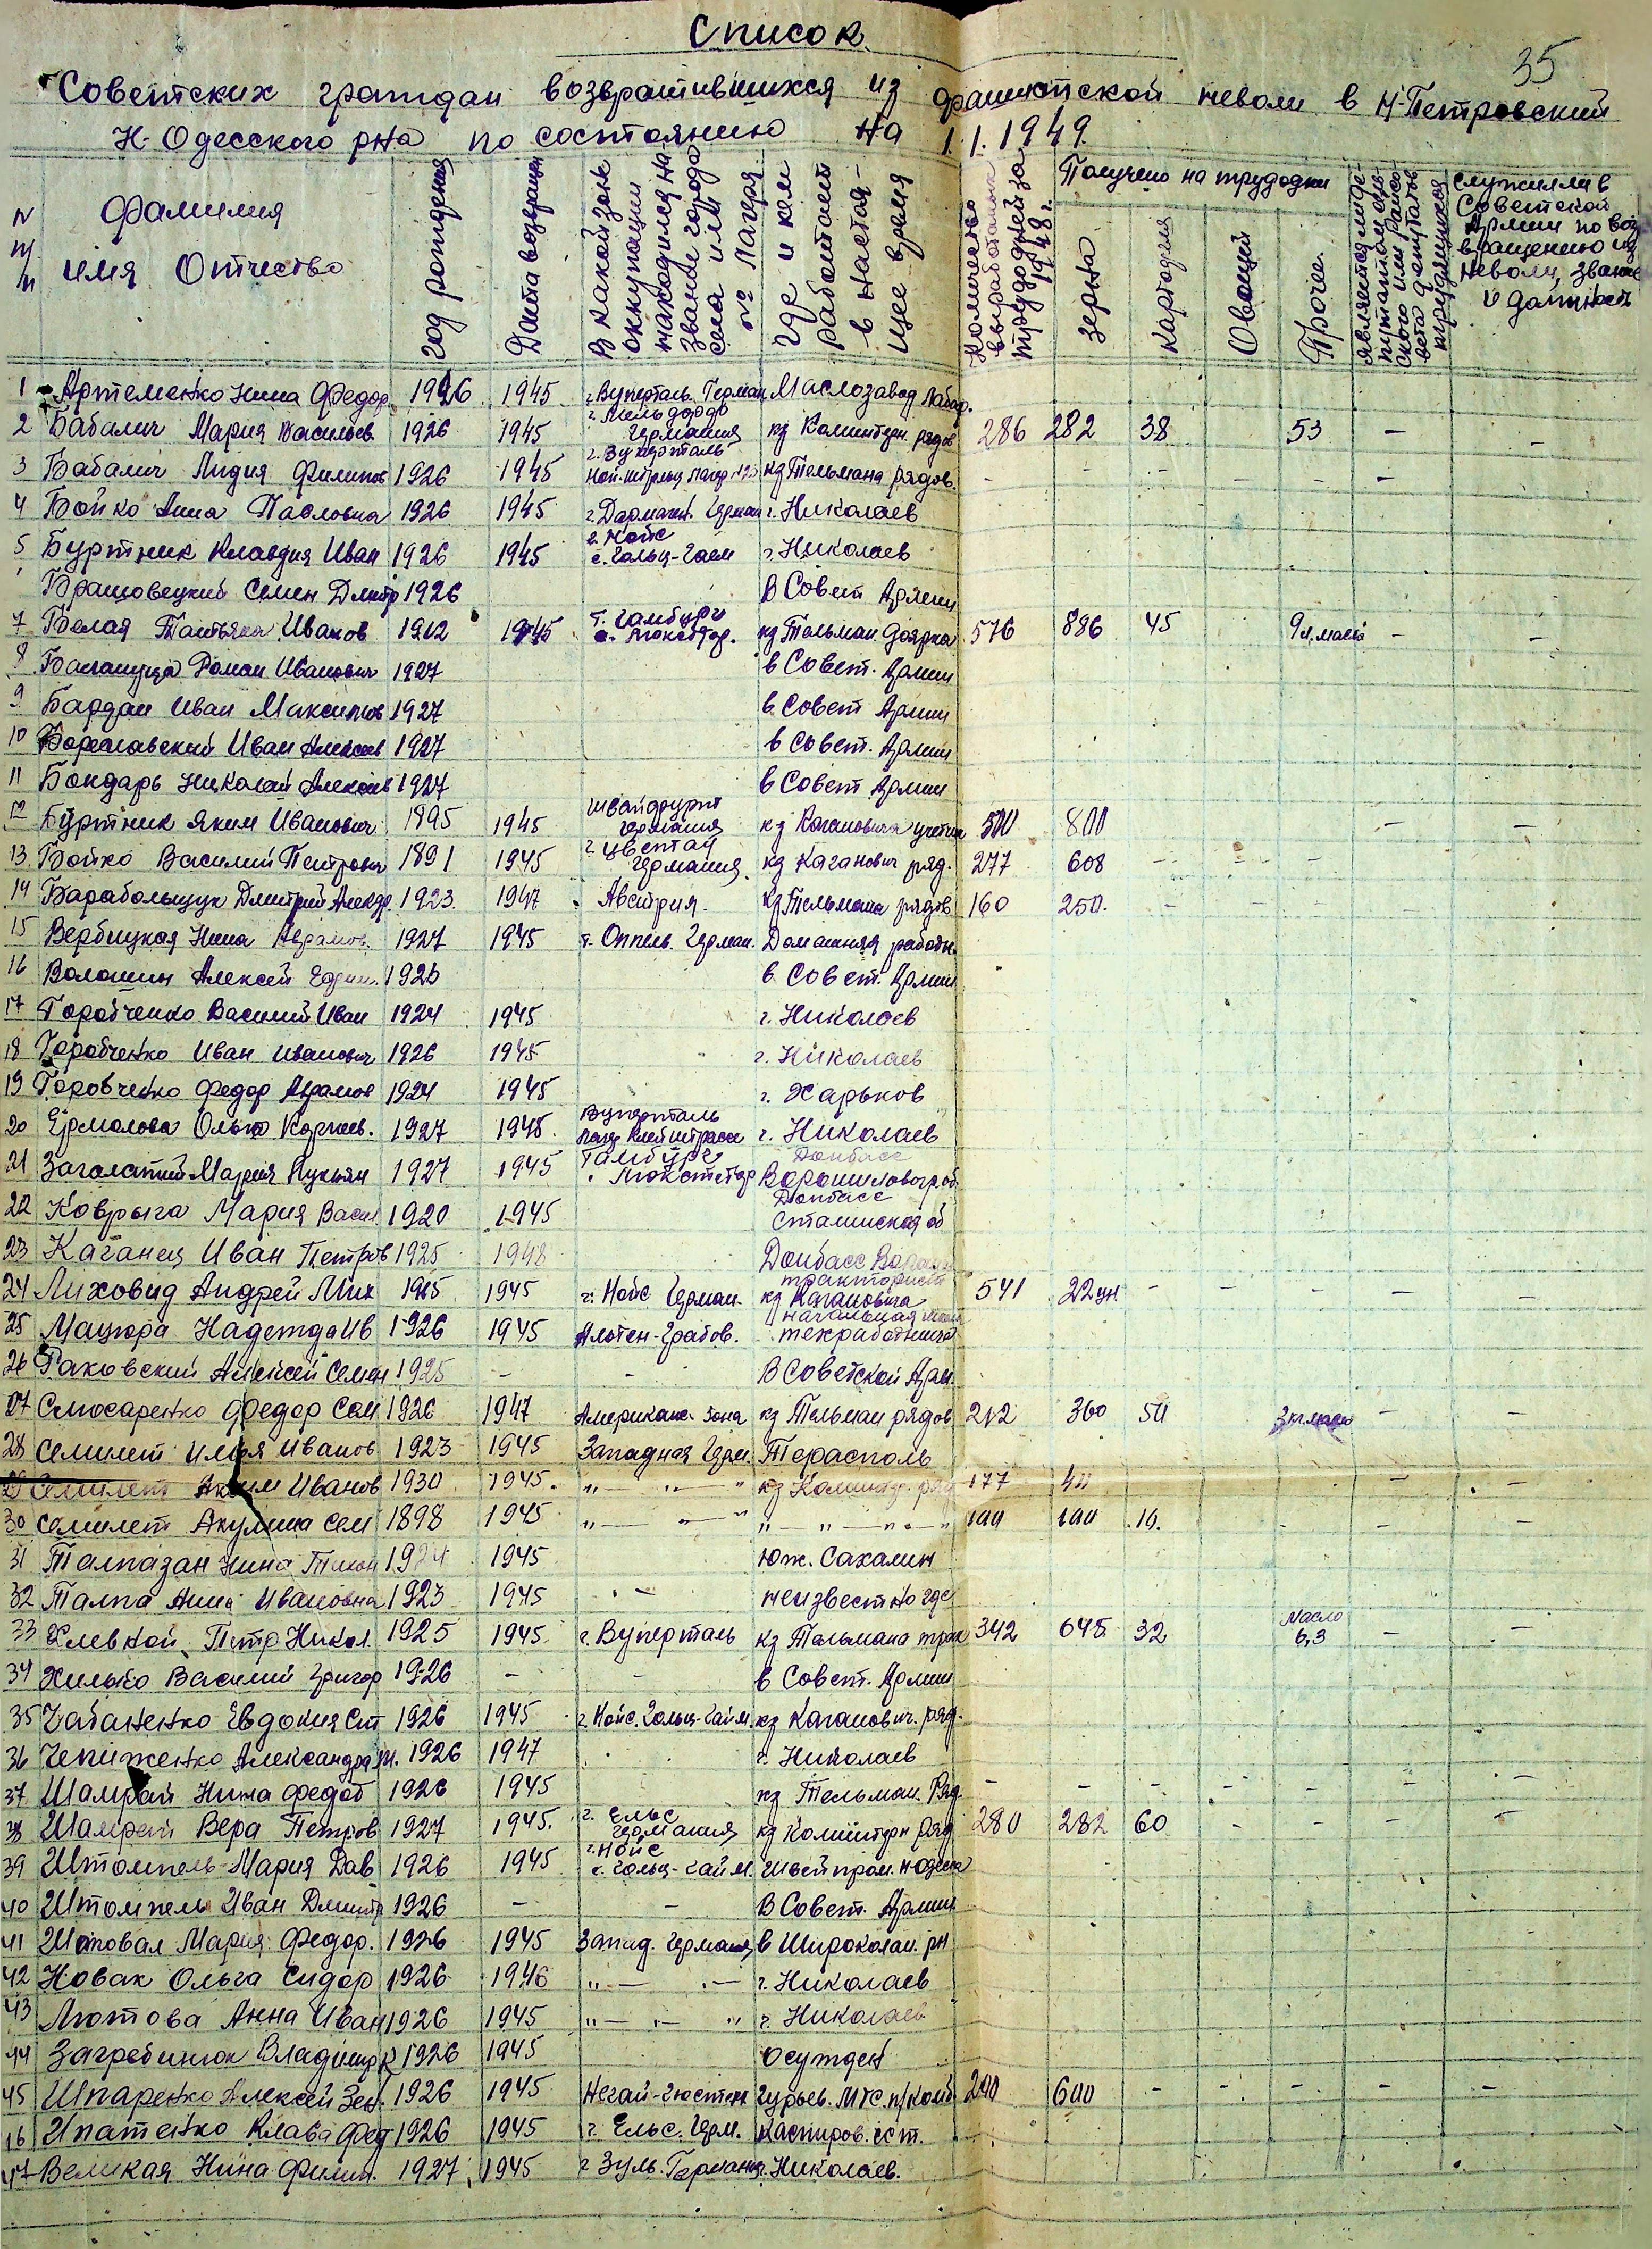 Список
35
Советских граждан возвратившихся из фашистской неволи в Н-Петровский
Н-Одесского р-на по состоянию на 1.1.1949.
N п/п
Фамилия имя Отчество
год рождения
Дата возвращен
В какой зоне оккупации находился название города села или № лагеря
Где и кем работает в настоящее время
Количество выработаных трудодней за 1948 г.
Получено на трудодни
зерна
картофеля
Овощей
Прочее
является ли депутатом сельского или райсовета депутатов трудящихся
служил ли в Советской Армии по возвращению из неволи, звание и должность
1 Артеменко Нина Федор. 1926 1945 г. Вуперталь. Герман Маслозавод лабор.
2 Бабалич Мария Васильев. 1926 1945 г. Мельдорф Германия кз Коминтерн. рядов 286 282 38 53 - -
3 Бабалич Лидия Филипов 1926 1945 г. Вуперталь кз Тельмана рядов. - - - - - -
4 Бойко Анна Павловна 1926 1945 г. Дармшт. Герман г. Николаев
5 Буртник Клавдия Иван 1926 1945 г. Нойс с. Гольц-Гаем г. Николаев
Бращовецкий Семен Дмитр 1926 В Совет Армии
7 Белая Татьяна Иванов 1912 1945 г. Гамбург кз Тельман. Доярка 576 886 45 9 л. масла - -
8 Роман Иванович 1927 в Совет. Армии
9 Бардан Иван Максимов 1927 в Совет Армии
10 Иван Алексеев 1927 в Совет. Армии
11 Бондарь Николай Алексеев 1927 в Совет Армии
12 Буртник Яким Иванович 1895 1945 Швайфурт Германия кз Кагановича учетчик 500 800 - -
13 Бойко Василий Петрович 1891 1945 г. Цветау Германия. кз Каганович ряд. 277 608 - - -
14 Барабольщук Дмитрий Алекдр. 1923 1947 Австрия. кз Тельмана рядов 160 250. - - - - -
15 Вербицкая Нина Аврамов. 1927 1945 г. Оппель. Герман. Домашняя работн.
16 Волошин Алексей 1926 в Совет. Армии
17 Горобченко Василий Иван 1924 1945 г. Николаев
18 Горобченко Иван Иванович 1926 1945 г. Николаев
19 Горовченко Федор Аврамов 1924 1945 г. Харьков
20 Ермолова Ольга Корнеев. 1927 1945. Вуперталь лагер Клейштрасси г. Николаев
21 Мария Лукьян 1927 1945 Гамбург Локштетдр Донбасс Ворошиловогр. об
22 Коврыга Мария Васил 1920 1945 Донбасс Сталинская об
23 Каганец Иван Петров 1925 1948 Донбасс Ворошил
24 Лиховид Андрей Мих 1925 1945 г. Нойс Герман. тракторист кз Кагановича 541 22 цн. - - - - -
25 Мацюра Надежда Ив 1926 1945 Альтен-Грабов. начальная школа техработница
26 Раковский Алексей Семен 1925 - - В Советской Арм.
27 Слюсаренко Федор Сам 1926 1947 Американс. зона кз Тельман рядов 212 360 50 3 кг. масло - -
28 Семилет Илья Иванов 1923 1945 Западная Герм. Терасполь
29 Семилет Аким Иванов 1930 1945. " — " — " кз Коминтр. ряд 177 - -
30 Семилет Акулина Сем 1898 1945 " — " — " " — " — " — " 100 100 10. - - -
31 Талпазан Нина Тихон 1924 1945 Юж. Сахалин
32 Талпа Анна Ивановна 1923 1945 - неизвестно где
33 Хлевной Петр Никол. 1925 1945 г. Вуперталь кз Тельмана трак 342 645 32 Масло 6,3 - -
34 Хилько Василий Григор 1926 - - в Совет. Армии
35 Чабаненко Евдокия Ст 1926 1945 г. Нойс. Гольц-Гайм. кз Каганович. ряд.
36 Чепиженко Александра М. 1926 1947 г. Николаев
37 Шамрай Нина Федот 1926 1945 кз Тельман. Ряд. - - - - - - -
38 Шамрай Вера Петров 1927 1945. г. Ельс Германия кз Коминтерн ряд 280 282 60 - - - -
39 Штомпель Мария Дав. 1926 1945 г. Нойс с. Гольц-Гайм. Швейпром. Н-Одесса
40 Штомпель Иван Дмитр 1926 - - В Совет. Армии
41 Шаповал Мария Федор. 1926 1945 Запад. Германия в Широколан. рн
42 Новак Ольга Сидор 1926 1946 " — . — г. Николаев
43 Лютова Анна Иван 1926 1945 " — " — " г. Николаев
44 Загребинюк Владимир К 1926 1945 осужден
45 Шпаренко Алексей Зен. 1926 1945 Негай-Гюстен Гурьев. МТС. п/комб 200 600 - - - - -
46 Ипатенко Клава Фед 1926 1945 г. Ельс. Герм. Каспиров. сст.
47 Великая Нина Филип. 1927 1945 г Зуль. Германия г. Николаев.